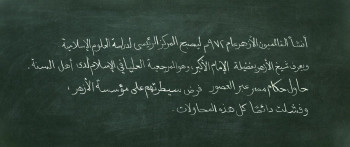 أنشأ الفاطميون الأزهر عام ٩٧٢م ليصبح المركز الرئيسى لدراسة العلوم الإسلامية
ويعد شيخ الأزهر فضيلة الإمام الأكبر، وهو المرجعية العليا في الإسلام لدى أهل السنة.
حاول حكام مصر عبر العصور فرض سيطرتهم على مؤسسة الأزهر،
وفشلت دائمًا كل هذه المحاولات.